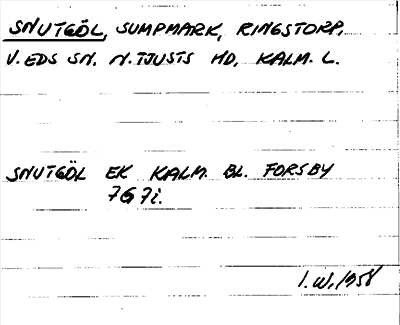 SNUTGÖL, SUMPMARK, RINGSTORP,
V. EDS SN. N. TJUSTS HD, KALM. L.
SNUTGÖL EK KALM. BL. FORSBY
7G 7i.
I.W. 1958